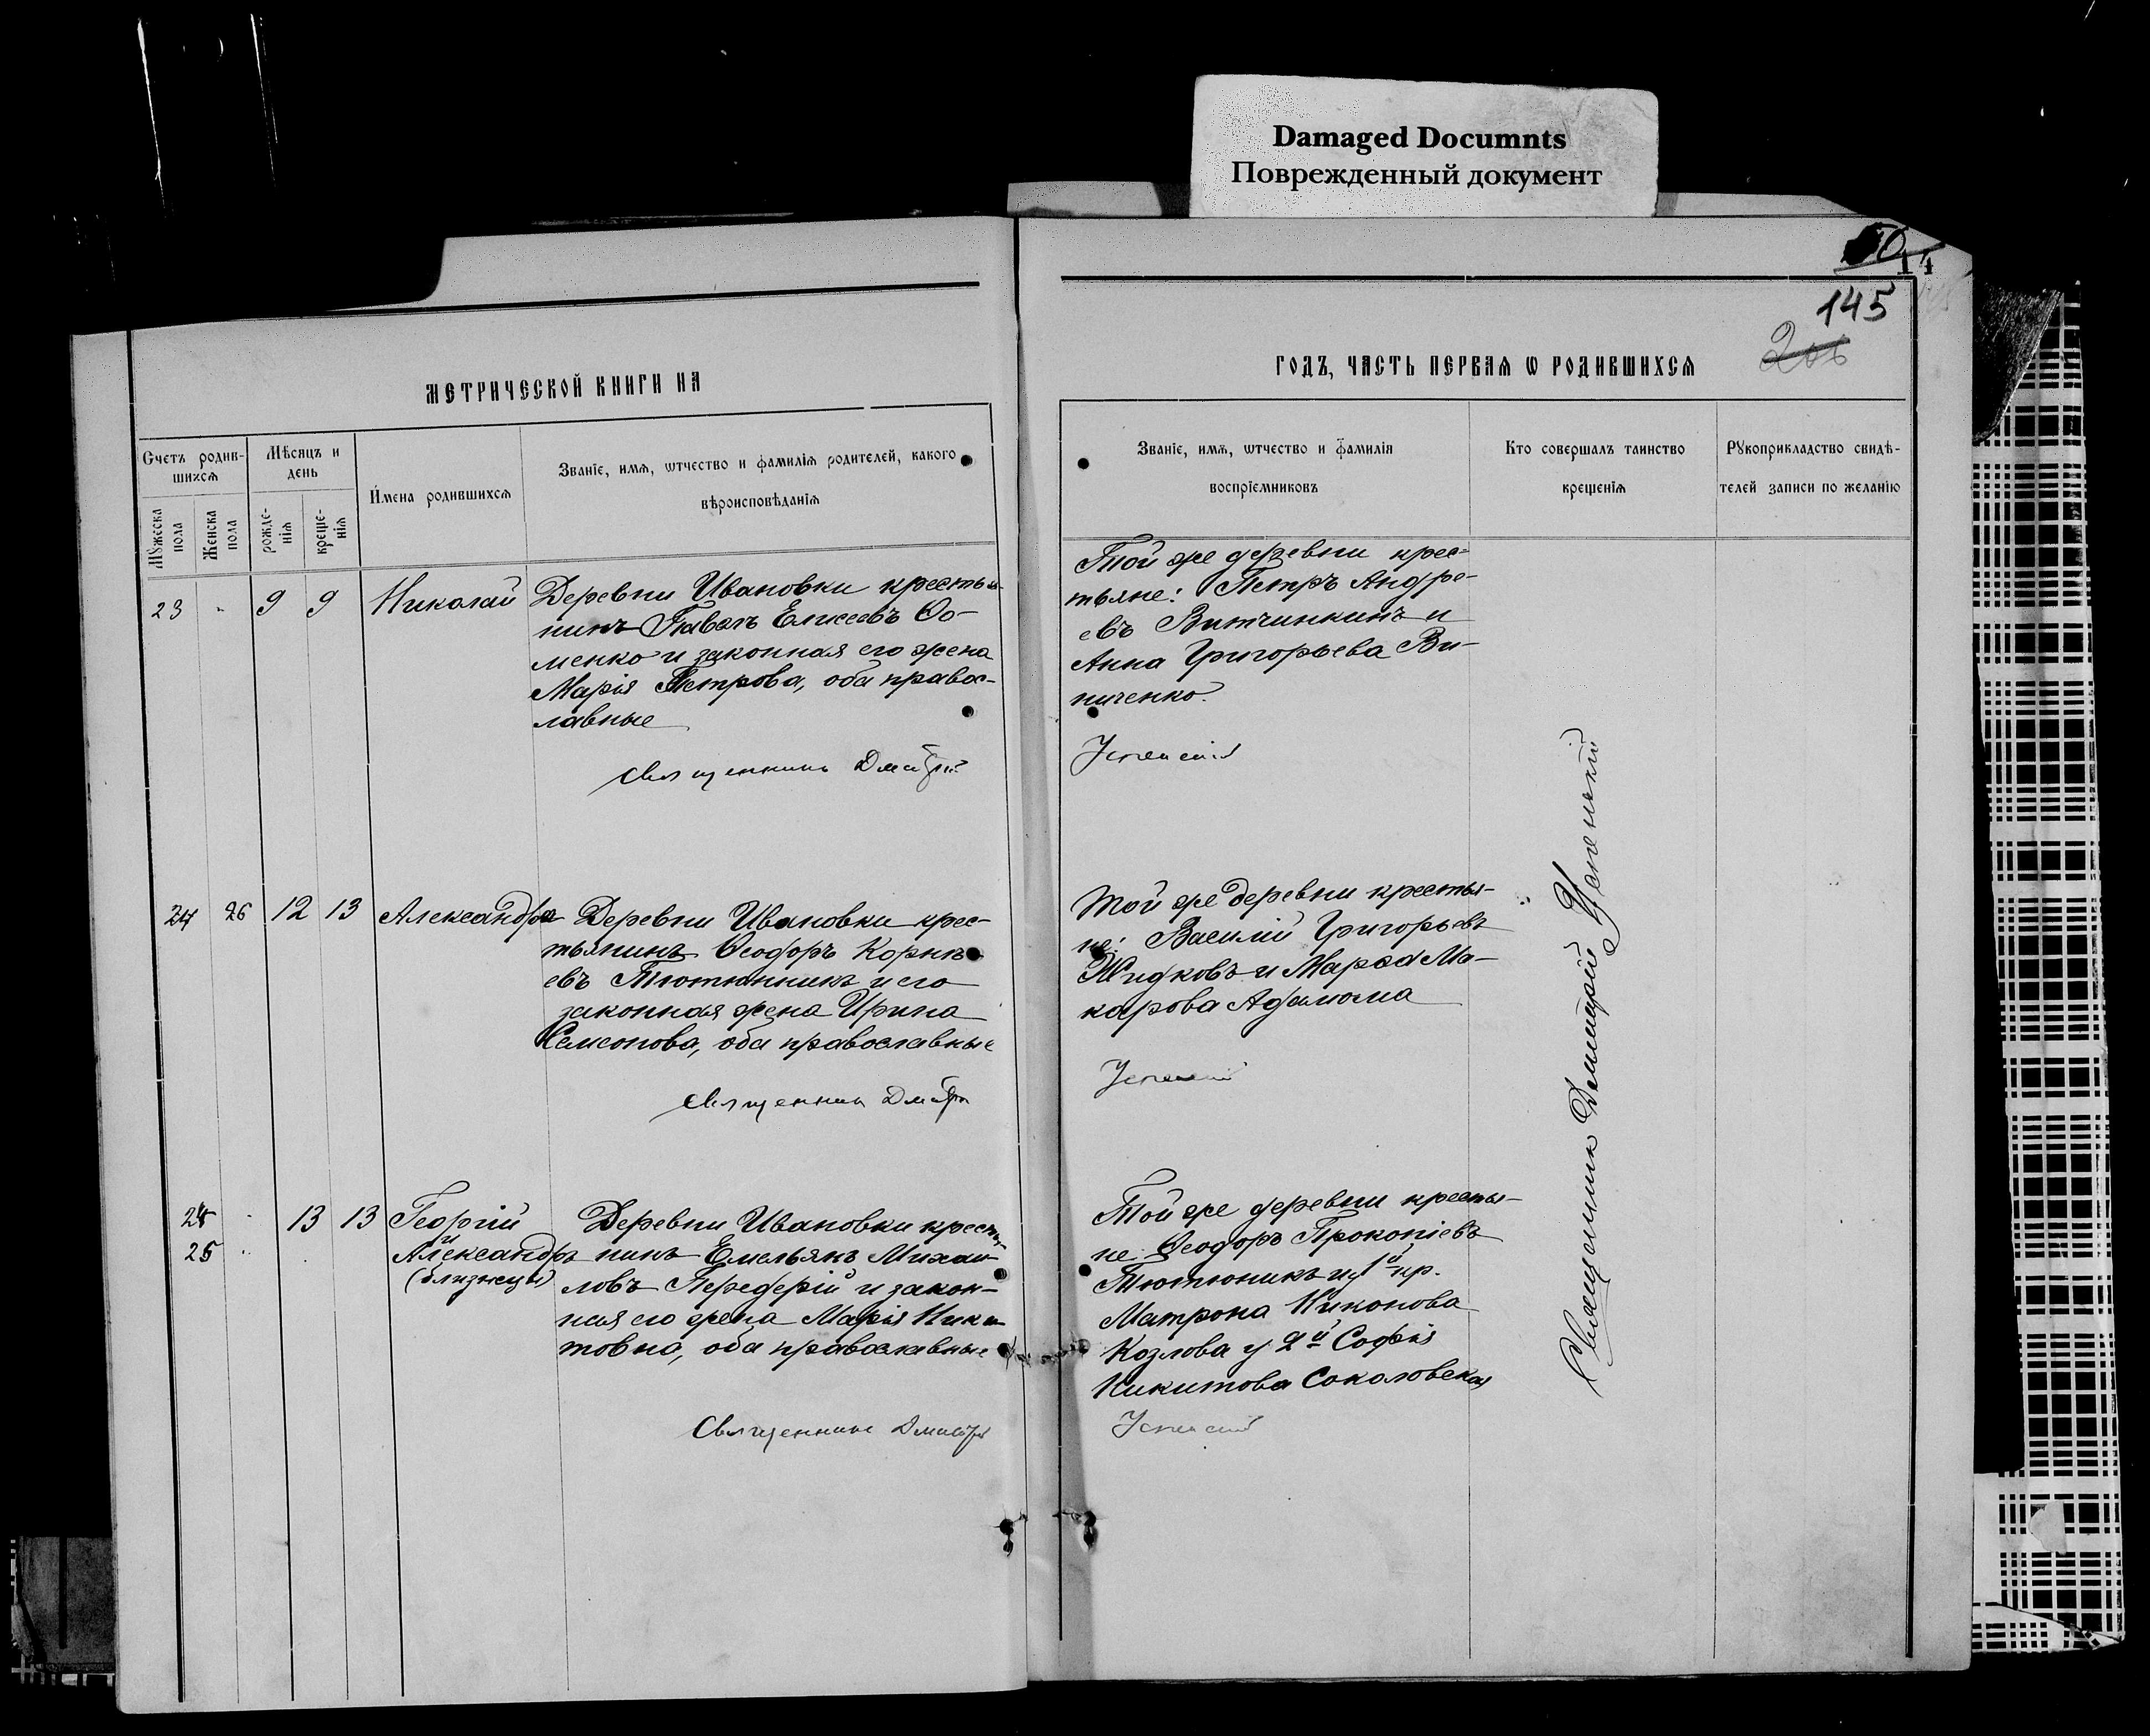 Damaged Documnts
Поврежденный документ
14
145
МЕТРИЧЕСКОЙ КНИГИ НА
ГОДЪ, ЧАСТЬ ПЕРВАЯ Ѡ РОДИВШИХСЯ
Счетъ родив-
шихсѧ
Мѣсяцъ и
день
Мꙋжеска
пола
Женска
пола
рожде-
нїѧ
креще-
нїѧ
Имена родившихсѧ
Званїе, имѧ, ѡтчество и фамилїѧ родителей, какого
вѣроисповѣданїѧ
Званїе, имѧ, ѡтчество и фамилїѧ
воспрїемниковъ
Кто совершалъ таинство
крещенїѧ
Рꙋкоприкладство свидѣ-
телей записи по желанїю
23 9 9 Николай
Деревни Ивановки крестья-
нинъ Павелъ Елисеевъ Ѳо-
менко и законная его жена
Марія Петрова, оба правос-
лавные
Священникъ Дмитрій
Той же деревни крес-
тьяне: Петръ Андре-
евъ Витчинкинъ и
Анна Григорьева Ви-
ниченко.
Успенскій
24 26 12 13 Александра
Деревни Ивановки крес-
тьянинъ Ѳеодоръ Корнѣ-
евъ Тютюнникъ и его
законная жена Ирина
Семенова, оба православные
Священникъ Дмитрій
Той же деревни крестья-
не: Василій Григорьевъ
Жидковъ и Марѳа Ма-
карова
Успенскій
24 13 13 Георгій
25
и
Александръ
(близнецы)
Деревни Ивановки крестья-
нинъ Емельянъ Михай-
ловъ Передерій и закон-
ная его жена Марія Ники-
товна, оба православные
Священникъ Дмитрій
Той же деревни крестья-
не: Ѳеодоръ Прокопіевъ
Тютюникъ и у 1й пр.
Матрона Никонова
Козлова у 2й Софія
Никитова Соколовская
Успенскій
Священникъ Димитрій Успенскій